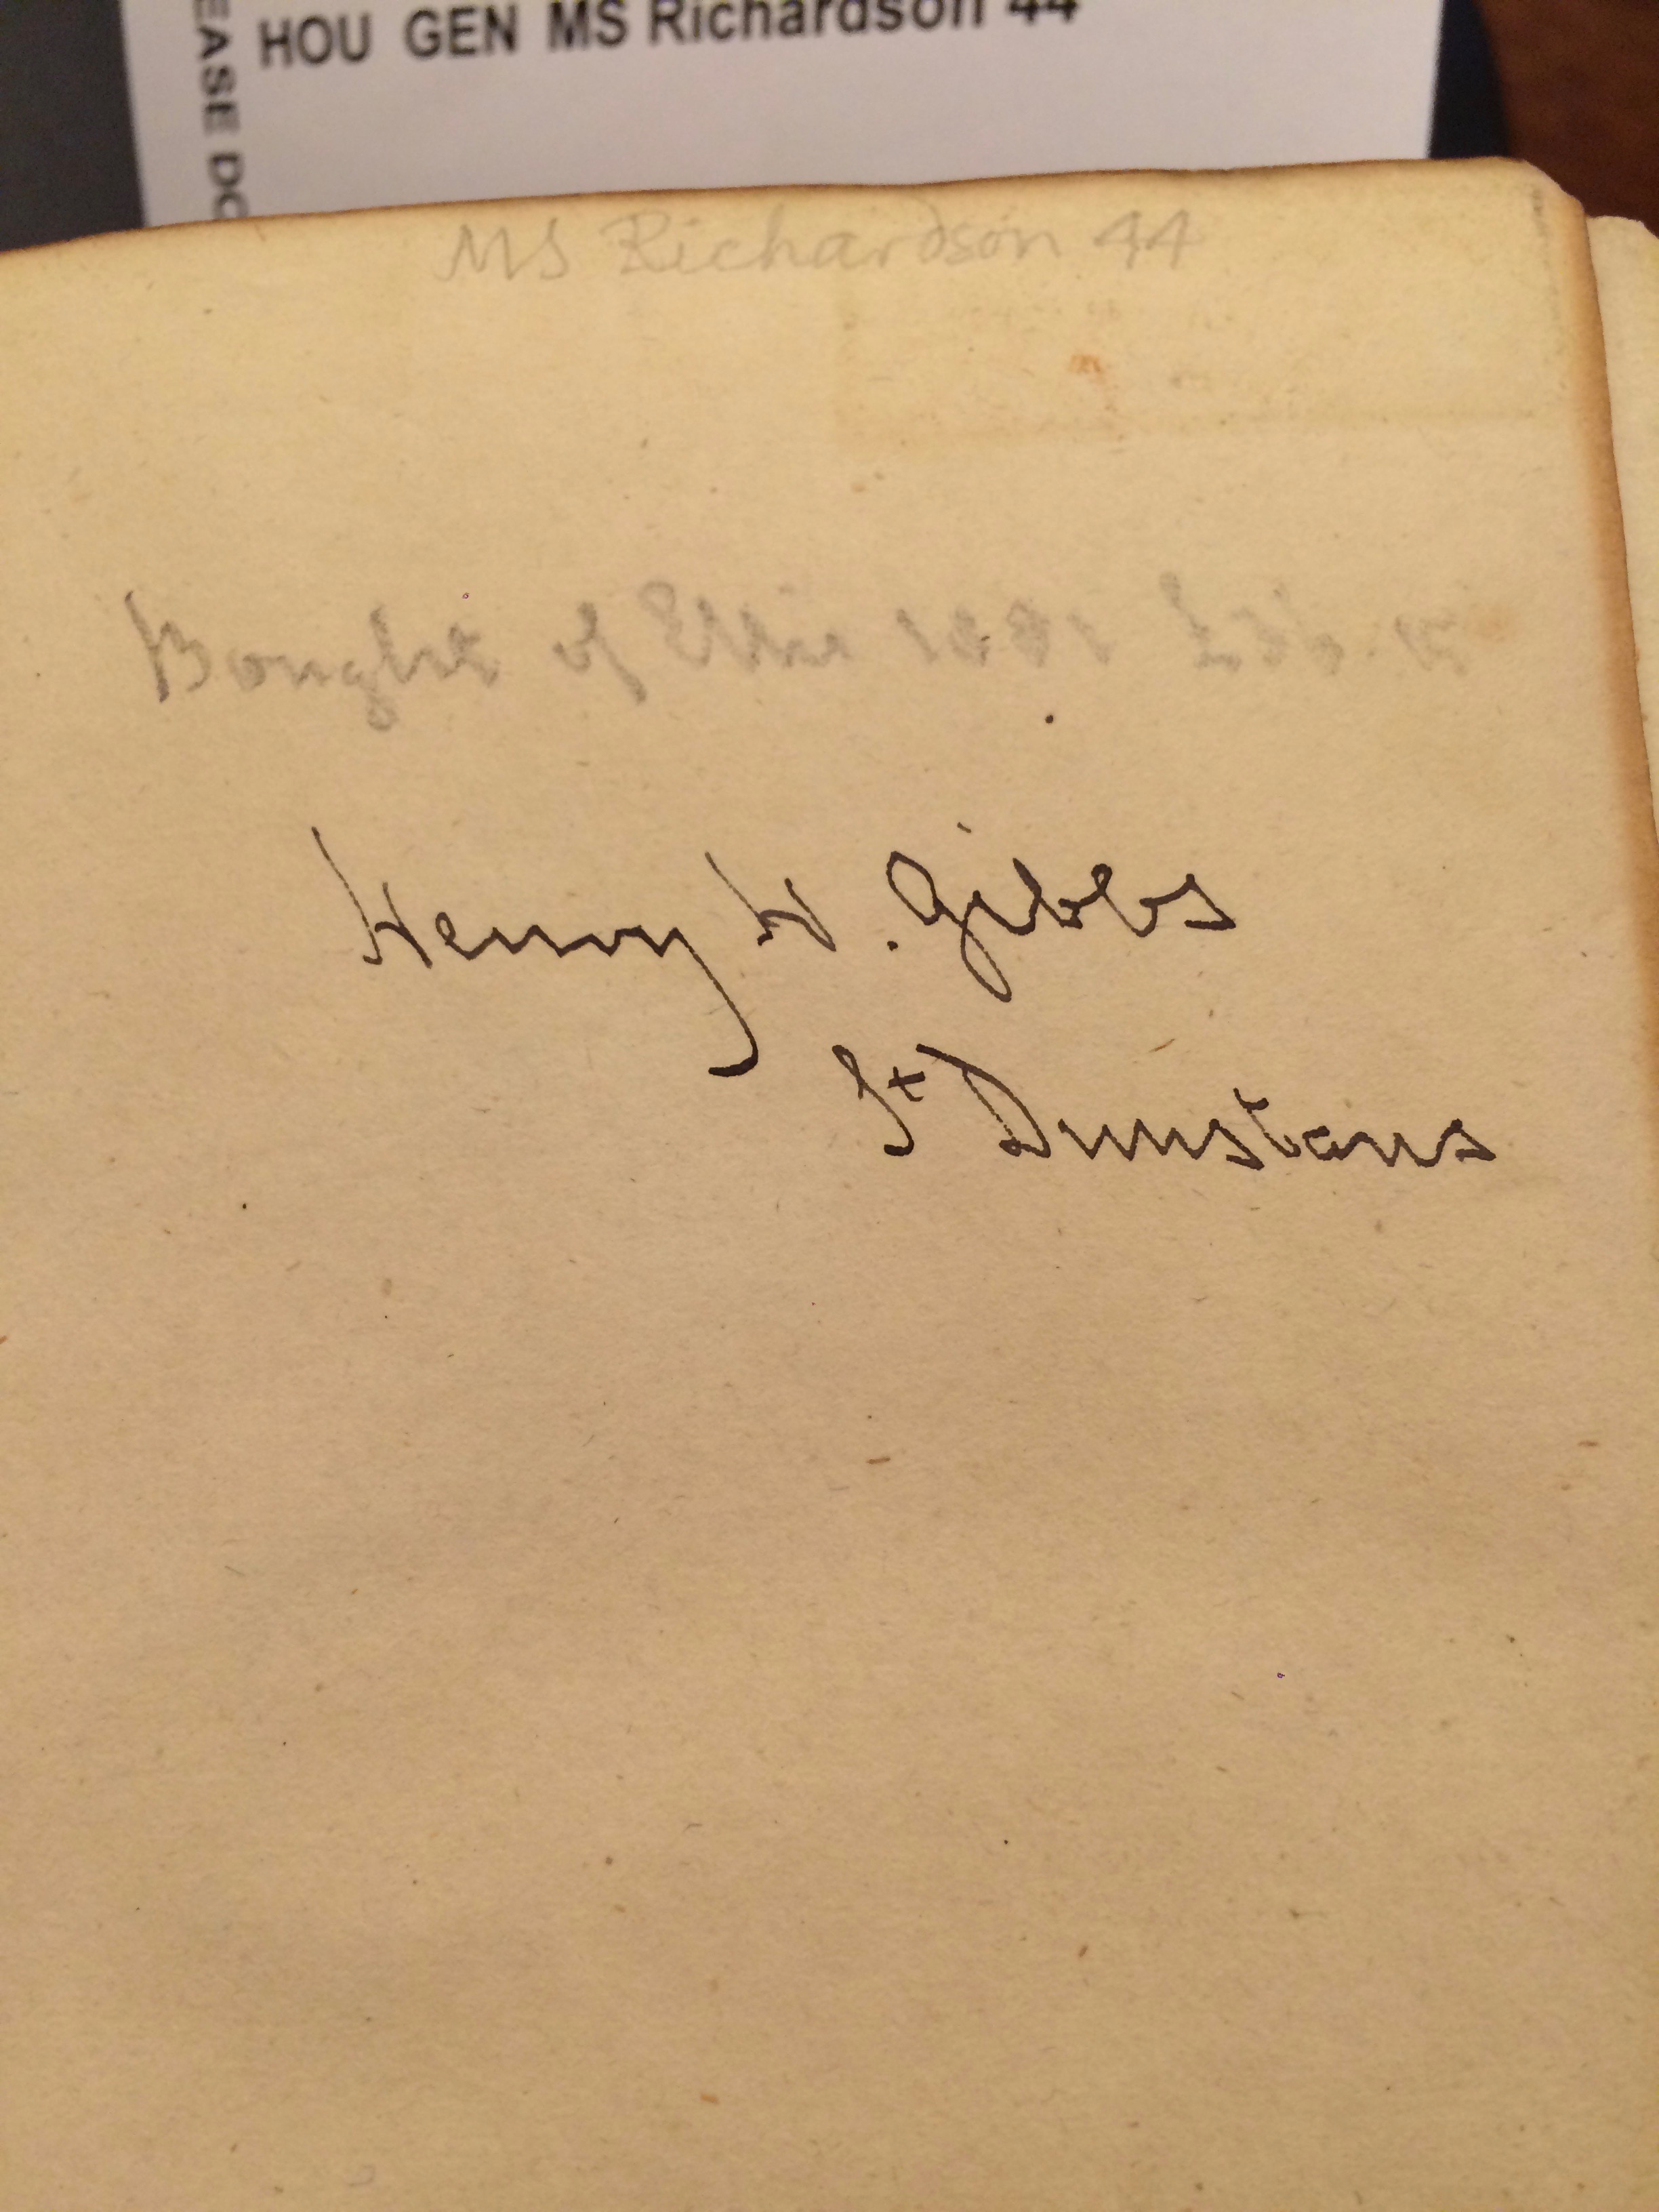 HOU GEN MS Richardson 44
EASE DO
MS Richardson 44
Bought of Ellis
Henry H. Gibbs
St Dunstans